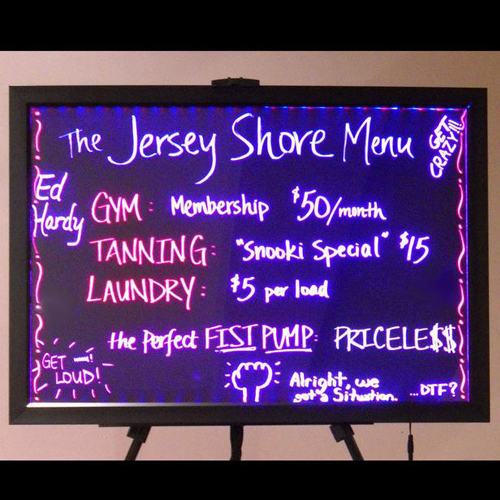 The Jersey Shore Menu
GET
CRAZY!!
Ed
Hardy
GYM: Membership $50/month
TANNING: "Snooki Special" $15
LAUNDRY: $5 per load
the Perfect FIST PUMP: PRICELE$$
GET
LOUD!
Alright, we
got a Situation.
...DTF?